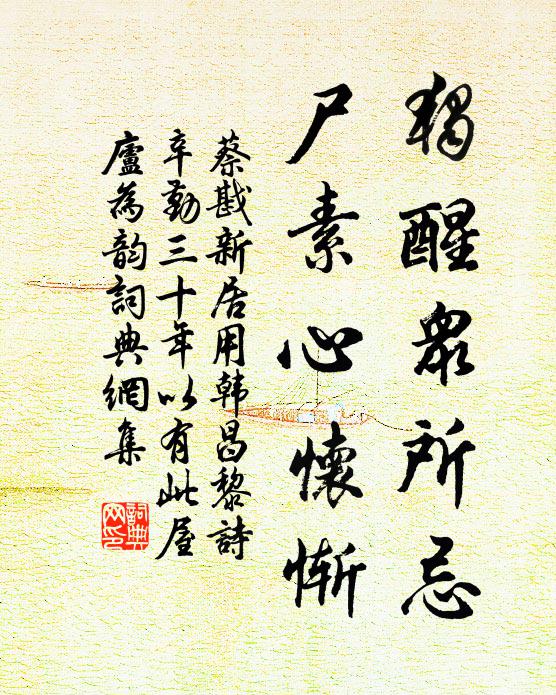 獨醒衆所忌
尸素心懷慚
蔡戡新居用韩昌黎詩
辛勤三十年以有此屋
廬為韵詞典網集
詞典网印